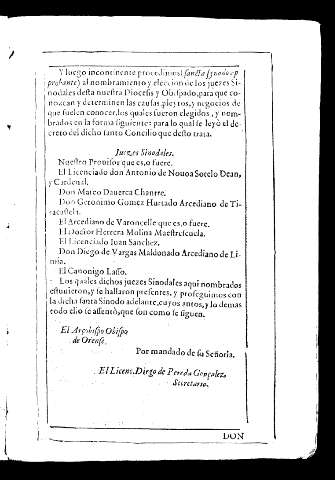 Y luego incontinente procedimos (sancta synodo ap
probante) al nombramiento y eleccion de los juezes Si-
nodales desta nuestra Diocesis y Obispado, para que co-
nozcan y determinen las causas, pleytos, y negocios de
que suelen conocer, los quales fueron elegidos, y nom-
brados en la forma siguiente: para lo qual se leyò el de-
creto del dicho santo Concilio que desto trata.
Juezes Sinodales.
Nuestro Prouisor que es, o fuere.
El Licenciado don Antonio de Nouoa Sotelo Dean,
y Cardenal.
Don Mateo Dauerca Chantre.
Don Geronimo Gomez Hurtado Arcediano de Ti-
racastela.
El Arcediano de Varoncelle que es, o fuere.
El Doctor Herrera Molina Maestrescuela.
El Licenciado Iuan Sanchez.
Don Diego de Vargas Maldonado Arcediano de Li-
mia.
El Canonigo Lasso.
Los quales dichos juezes Sinodales aqui nombrados
estuuieron, y se hallaron presentes, y proseguimos con
la dicha santa Sinodo adelante, cuyos autos, y lo demas
todo ello se assentò, que son como se siguen.
El Arçobispo Obispo
de Orense.
Por mandado de su Señoria.
El Licenc. Diego de Pereda Gonçalez,
Secretario.
DON